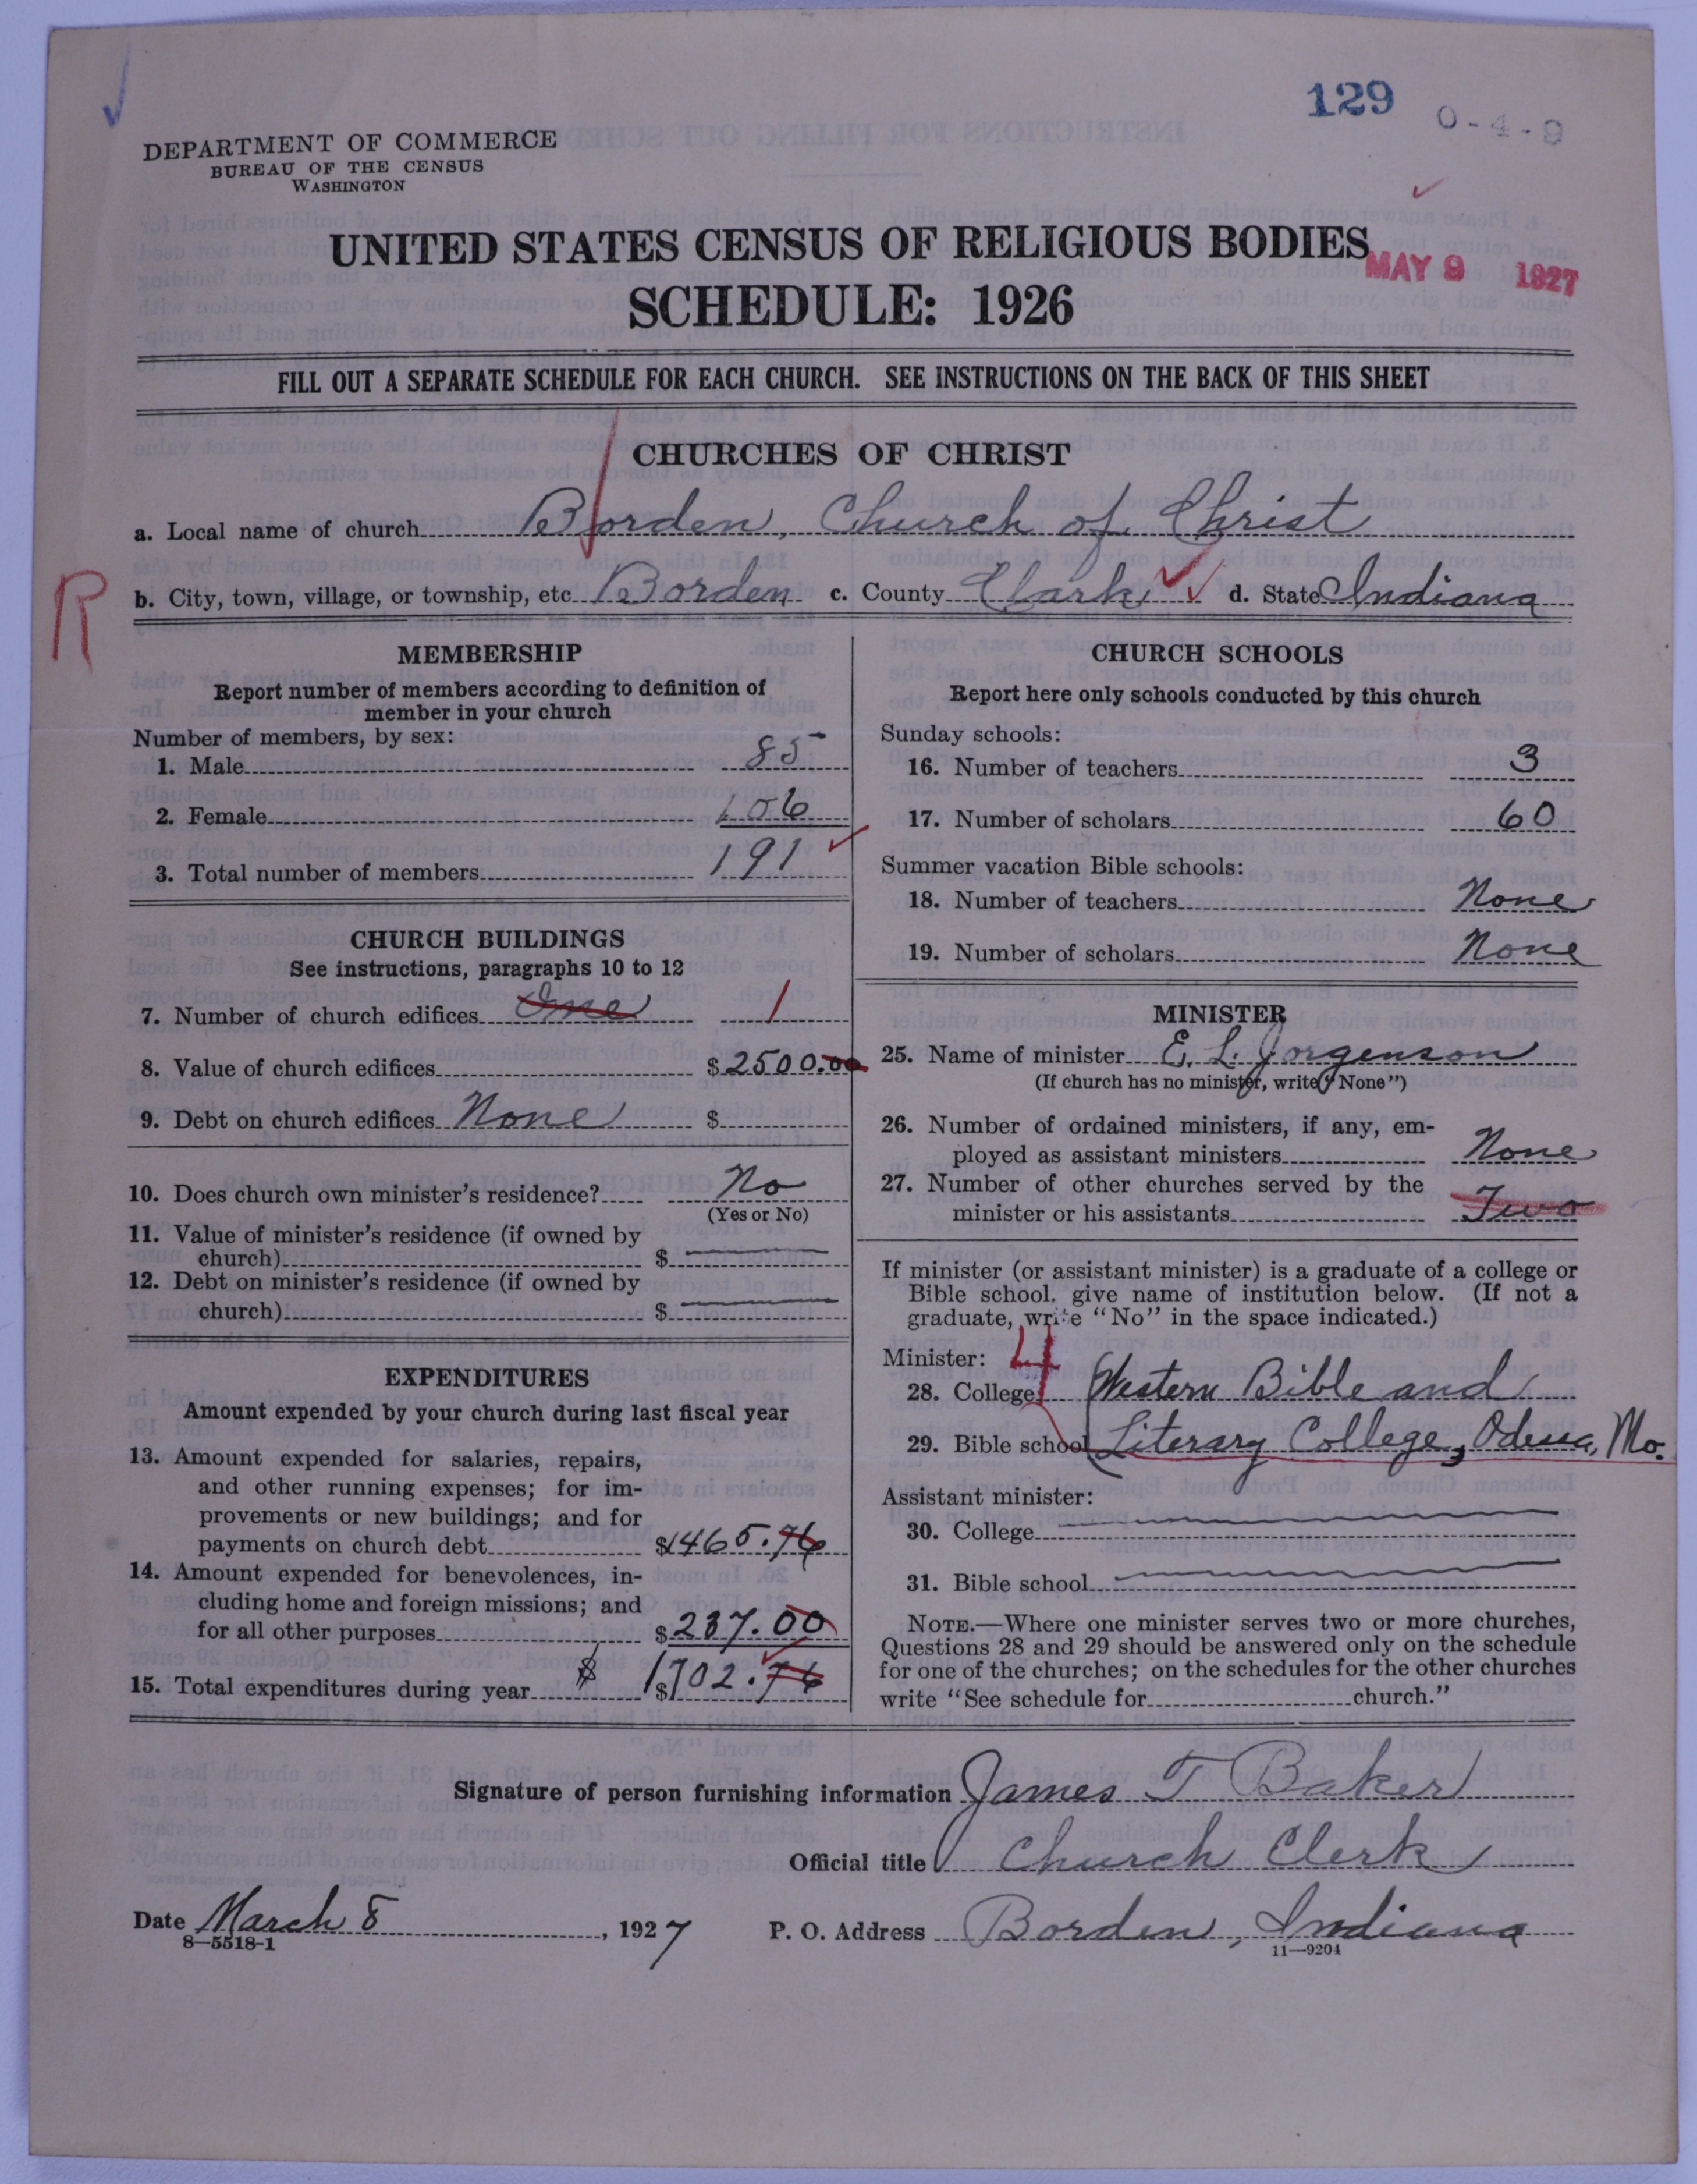 129
0-4-9
DEPARTMENT OF COMMERCE
BUREAU OF THE CENSUS
WASHINGTON
UNITED STATES CENSUS OF RELIGIOUS BODIES
MAY 9 1927
SCHEDULE: 1926
FILL OUT A SEPARATE SCHEDULE FOR EACH CHURCH. SEE INSTRUCTIONS ON THE BACK OF THIS SHEET
CHURCHES OF CHRIST
a. Local name of church Borden, Church of Christ
R
b. City, town, village, or township, etc. Borden c. County Clark d. State Indiana
MEMBERSHIP
Report number of members according to definition of
member in your church
Number of members, by sex:
1. Male 85
2. Female 106
3. Total number of members 191
CHURCH BUILDINGS
See instructions, paragraphs 10 to 12
7. Number of church edifices One 1
8. Value of church edifices $2500.00
9. Debt on church edifices None $
10. Does church own minister's residence? No
(Yes or No)
11. Value of minister's residence (if owned by
church) $
12. Debt on minister's residence (if owned by
church) $
EXPENDITURES
Amount expended by your church during last fiscal year
13. Amount expended for salaries, repairs,
and other running expenses; for im-
provements or new buildings; and for
payments on church debt $1465.76
14. Amount expended for benevolences, in-
cluding home and foreign missions; and
for all other purposes $237.00
15. Total expenditures during year $ $1702.76
CHURCH SCHOOLS
Report here only schools conducted by this church
Sunday schools:
16. Number of teachers 3
17. Number of scholars 60
Summer vacation Bible schools:
18. Number of teachers None
19. Number of scholars None
MINISTER
25. Name of minister E. L. Jorgenson
(If church has no minister, write "None")
26. Number of ordained ministers, if any, em-
ployed as assistant ministers None
27. Number of other churches served by the
minister or his assistants Two
If minister (or assistant minister) is a graduate of a college or
Bible school, give name of institution below. (If not a
graduate, write "No" in the space indicated.)
Minister: 4
28. College Western Bible and
29. Bible school Literary College, Odessa, Mo.
Assistant minister:
30. College
31. Bible school
NOTE.—Where one minister serves two or more churches,
Questions 28 and 29 should be answered only on the schedule
for one of the churches; on the schedules for the other churches
write "See schedule for church."
Signature of person furnishing information James T Baker
Official title Church Clerk
Date March 8, 1927 P. O. Address Borden, Indiana
8—5518-1
11—9204